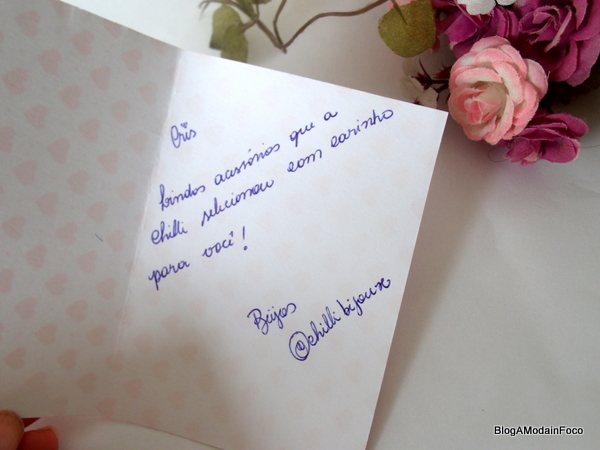 Cris
lindos acessórios que a
Chilli selecionou com carinho
para você!
Beijos
@chillibijoux
BlogAModainFoco